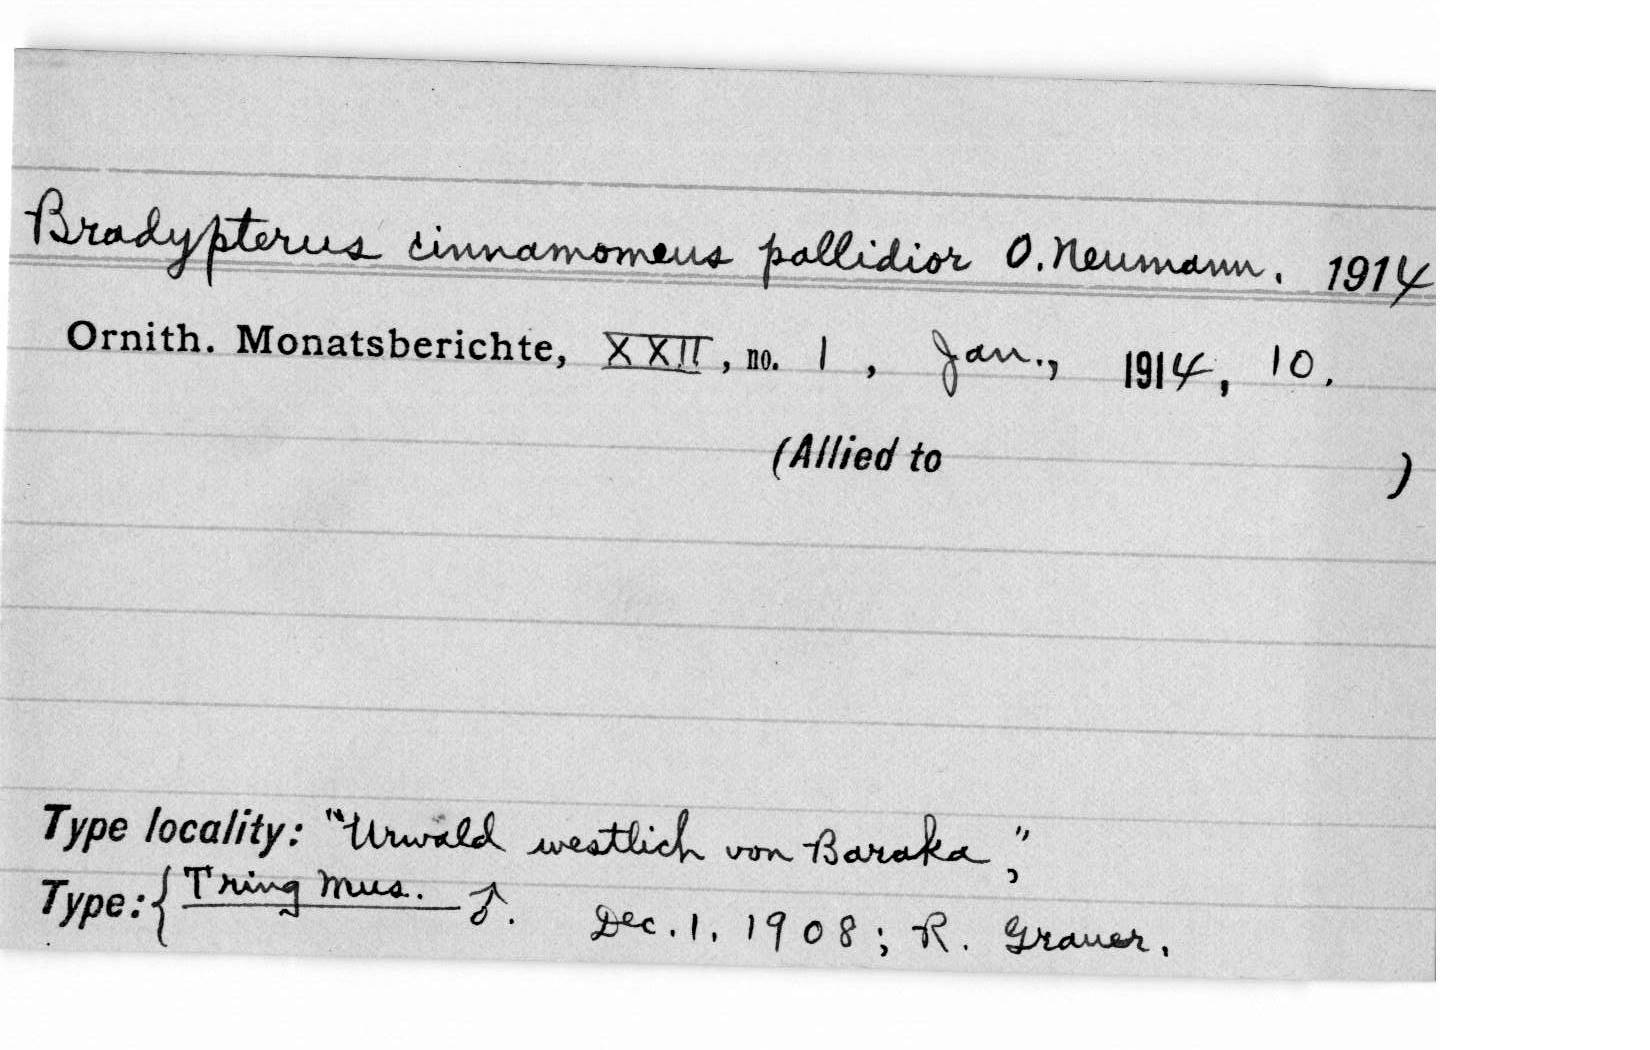 Bradypterus cinnamomeus pallidior O. Neumann. 1914
Ornith. Monatsberichte, XXII, no. 1, Jan., 1914, 10.
(Allied to )
Type locality: "Urwald westlich von Baraka,"
Type: { Tring Mus. ♂. Dec. 1, 1908; R. Grauer.